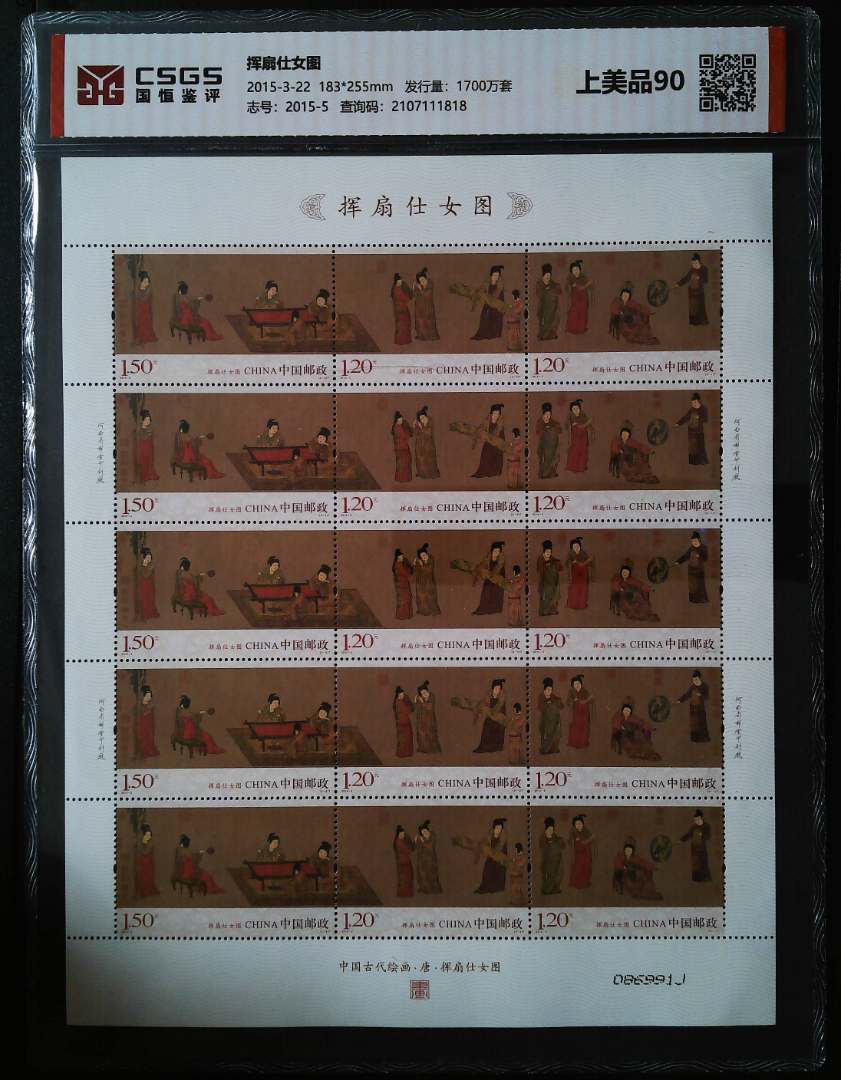 CSGS
国恒鉴评
挥扇仕女图
2015-3-22 183*255mm 发行量：1700万套
志号：2015-5 查询码：2107111818
上美品90
挥扇仕女图
1.50元 挥扇仕女图 CHINA中国邮政
1.20元 挥扇仕女图 CHINA中国邮政
1.20元 挥扇仕女图 CHINA中国邮政
1.50元 挥扇仕女图 CHINA中国邮政
1.20元 挥扇仕女图 CHINA中国邮政
1.20元 挥扇仕女图 CHINA中国邮政
1.50元 挥扇仕女图 CHINA中国邮政
1.20元 挥扇仕女图 CHINA中国邮政
1.20元 挥扇仕女图 CHINA中国邮政
1.50元 挥扇仕女图 CHINA中国邮政
1.20元 挥扇仕女图 CHINA中国邮政
1.20元 挥扇仕女图 CHINA中国邮政
1.50元 挥扇仕女图 CHINA中国邮政
1.20元 挥扇仕女图 CHINA中国邮政
1.20元 挥扇仕女图 CHINA中国邮政
河南省邮电印刷厂
河南省邮电印刷厂
河南省邮电印刷厂
河南省邮电印刷厂
中国古代绘画·唐·挥扇仕女图
086991J